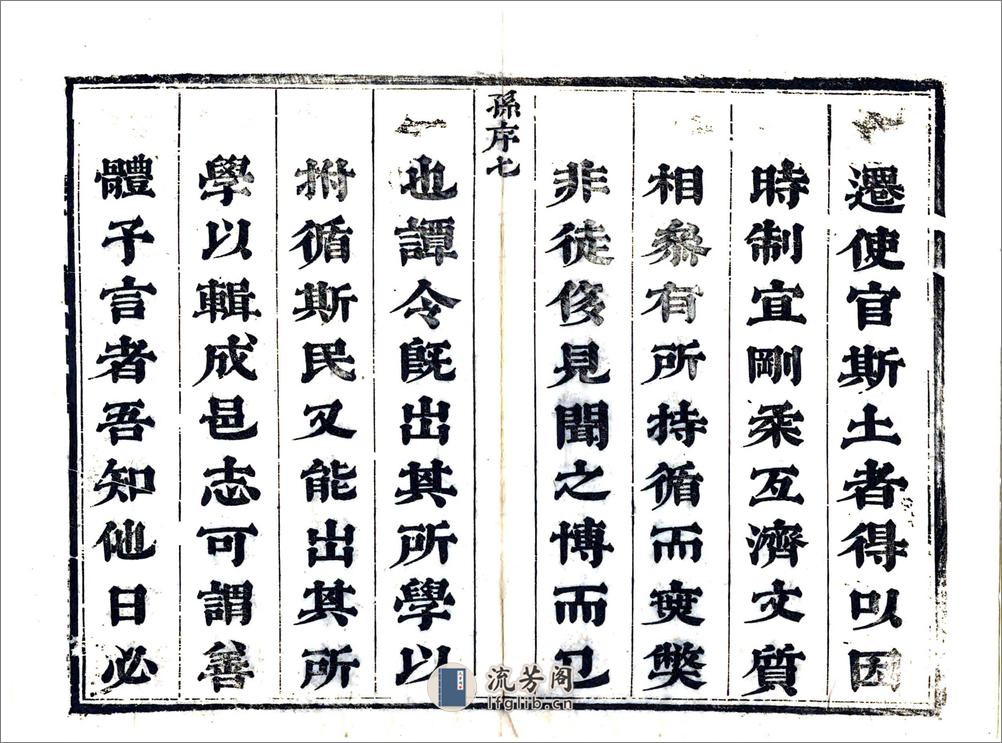 遷使官斯土者得㕥因
時制宜剛柔互濟文質
相叅有所持循而寡獘
非徒侈見聞之博而已
孫序七
也譚令旣出其所學以
拊循斯民又能出其所
學以輯成邑志可謂善
體予言者吾知他日必
流芳阁
lfglib.cn